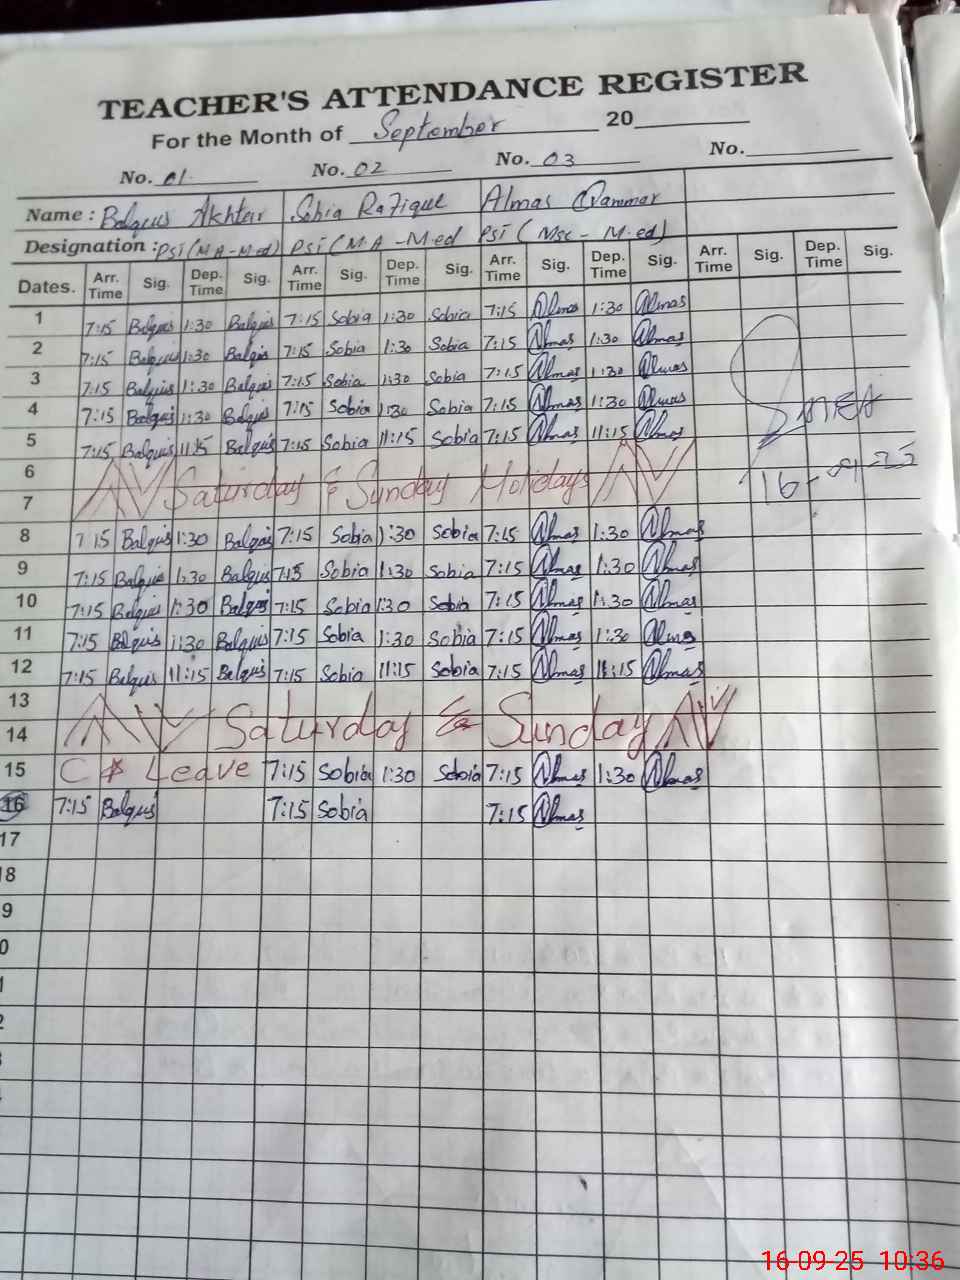 TEACHER'S ATTENDANCE REGISTER
For the Month of September 20
No. 01 No. 02 No. 03 No.
Name : Balqus Akhter Sobia Rafique Almas
Designation : PSI (M A - M-ed) PSI (M.A - M-ed PSI ( MSc - M-ed)
Dates. Arr. Time Sig. Dep. Time Sig. Arr. Time Sig. Dep. Time Sig. Arr. Time Sig. Dep. Time Sig. Arr. Time Sig. Dep. Time Sig.
1 7:15 Balquis 1:30 Balquis 7:15 Sobia 1:30 Sobia 7:15 Almas 1:30 Almas
2 7:15 Balquis 1:30 Balqis 7:15 Sobia 1:30 Sobia 7:15 Almas 1:30 Almas
3 7:15 Balquis 1:30 Balquis 7:15 Sobia 1:30 Sobia 7:15 Almas 1:30 Almas
4 7:15 Balquis 1:30 Balquis 7:15 Sobia 1:30 Sobia 7:15 Almas 1:30 Almas
5 7:15 Balquis 11:15 Balquis 7:15 Sobia 11:15 Sobia 7:15 Almas 11:15 Almas
6
7 Saturday & Sunday Holidays
16-09-25
8 7:15 Balquis 1:30 Balquis 7:15 Sobia 1:30 Sobia 7:15 Almas 1:30 Almas
9 7:15 Balquis 1:30 Balquis 7:15 Sobia 1:30 Sobia 7:15 Almas 1:30 Almas
10 7:15 Balquis 1:30 Balquis 7:15 Sobia 1:30 Sobia 7:15 Almas 1:30 Almas
11 7:15 Balquis 1:30 Balquis 7:15 Sobia 1:30 Sobia 7:15 Almas 1:30 Almas
12 7:15 Balquis 11:15 Balquis 7:15 Sobia 11:15 Sobia 7:15 Almas 11:15 Almas
13
14 Saturday & Sunday
15 C Leave 7:15 Sobia 1:30 Sobia 7:15 Almas 1:30 Almas
16 7:15 Balquis 7:15 Sobia 7:15 Almas
17
18
9
0
1
2
3
16-09-25 10:36